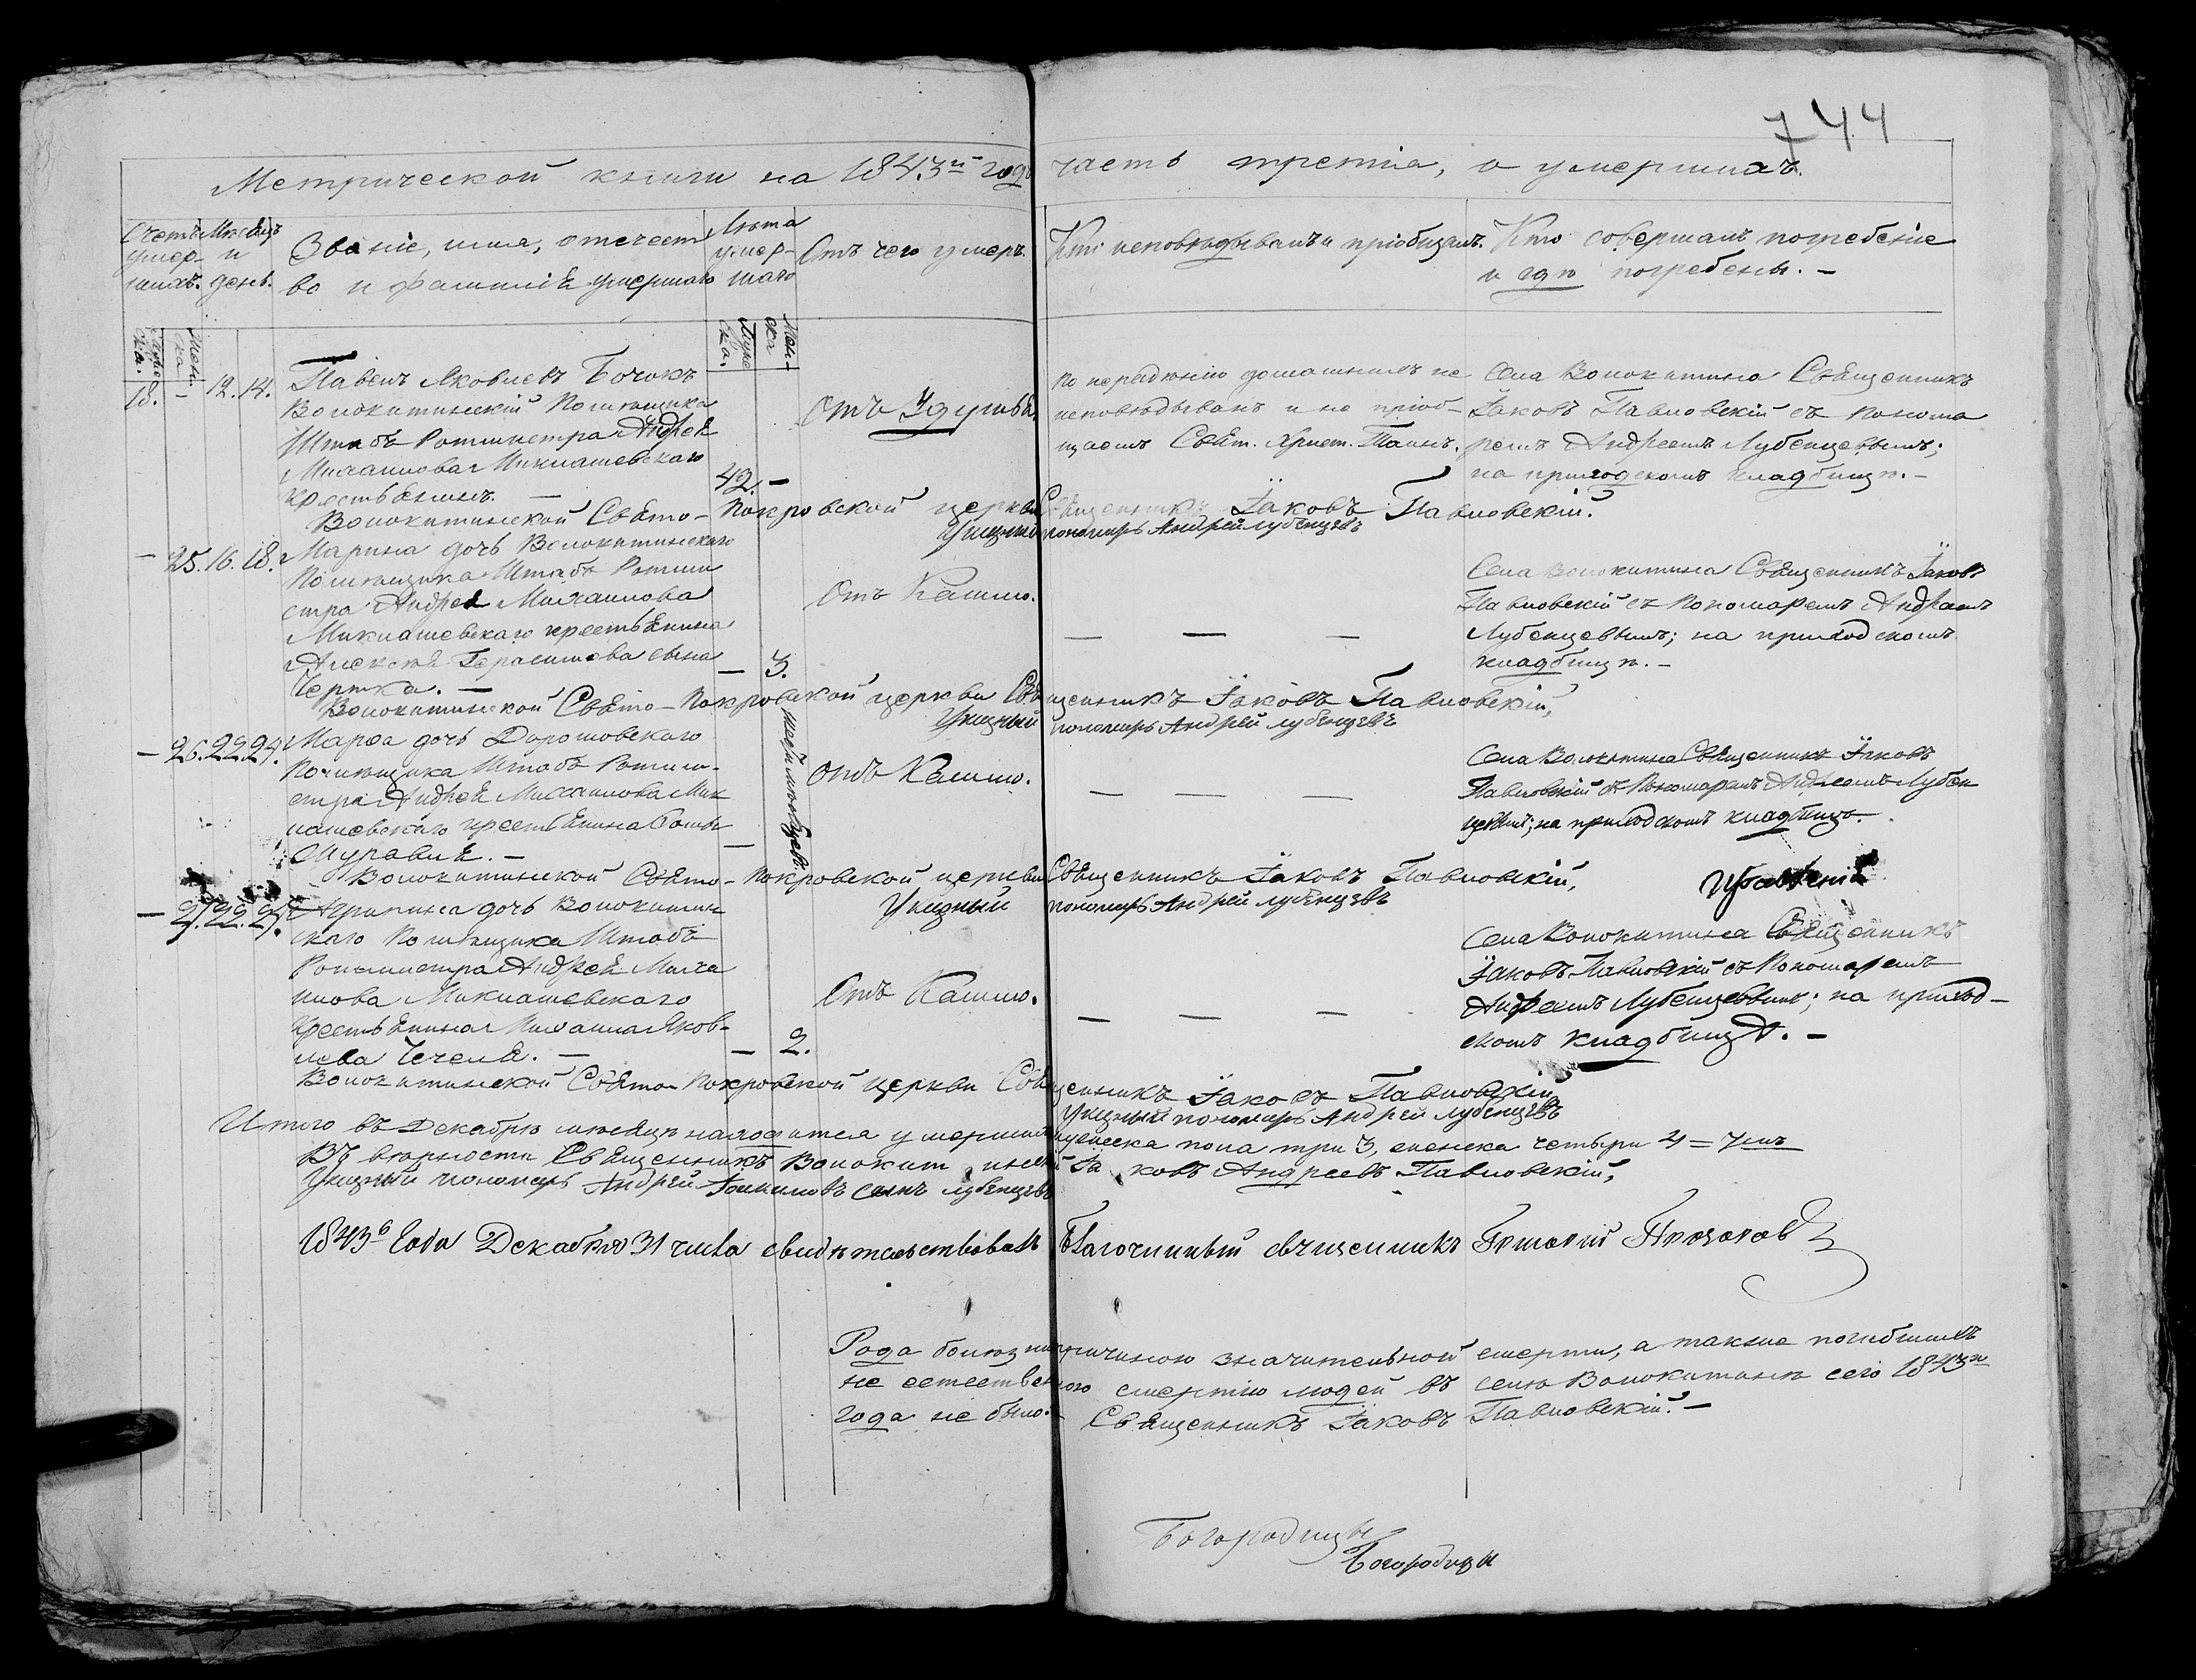 744
Метрической книги на 1843й годъ часть третія, о умершихъ.
Счетъ умер-шихъ.
Мѣсяцъ и день.
Званіе, имя, отечест
во и фамилiѣ умершаго
Лѣта
умер-
шаго
Отъ чего умеръ.
Кто исповѣдывалъ и пріобщалъ.
Кто совершалъ погребеніе
и гдѣ погребены. –
Муже
ска.
Жен
ска
Муже
ска.
Жен-
ска
18. – 12. 14.
Павелъ Яковлевъ Бочокъ
Волокитинскій Помѣщика
Штабъ Ротмистра Андрей
Михаилова Миклашевскаго
крестьѣнинъ. –
42. –
Отъ Удушья
По нерадѣнію домашнихъ не
исповѣдыванъ и не пріоб-
щаемъ Свѣт. Христ. Таинъ.
Села Волокитина Свѣщенникъ
Іаковъ Павловскій съ понома
ремъ Андреемъ Лубенцевымъ;
на приходскомъ кладбищѣ. –
Волокитинской Свѣто-Покровской церкви Свѣщенникъ Іаковъ Павловскій.
Указный пономарь Андрей лубенцевъ
– 25. 16. 18.
Марина дочь Волокитинскаго
Помѣщика Штабъ Ротми
стра Андрея Михаилова
Миклашевскаго крестьѣнина
Алексѣѣ Герасимова сына
Чертка. –
– 3.
Отъ Кашлю.
– – –
Села Волокитина Свѣщенникъ Іаковъ
Павловскій съ Пономаремъ Андреемъ
Лубенцевымъ; на приходскомъ
кладбищѣ. –
Волокитинской Свѣто-Покровской церкви Свѣщенникъ Іаковъ Павловскій,
Указный пономарь Андрей лубенцевъ
– 26. 22. 24.
Марѳа дочь Дорошовскаго
Помѣщика Штабъ Ротми-
стра Андрей Михаилова Мик
лашевскаго крестьѣнина
Журавлѣ. –
–
мѣсяцевъ
Отъ Кашлю.
– – –
Села Волокитина Свѣщенникъ Іаковъ
Павловскій съ Пономаремъ Андреемъ Лубен
цевымъ; на приходскомъ кладбищѣ. –
Волокитинской Свѣто-Покровской церкви Свѣщенникъ Іаковъ Павловскій,
Указный пономарь Андрей лубенцевъ
– 27. 22. 25.
Агрипина дочь Волокитин
скаго Помѣщика Штабъ
Ротмистра Андрей Миха
илова Миклашевскаго
крестьѣнина Михаила Яков-
лева Чечелѣ. –
– 2.
Отъ Кашлю.
– – –
Села Волокитина Свѣщенникъ
Іаковъ Павловскій съ Пономаремъ
Андреемъ Лубенцевымъ; на приход-
скомъ кладбищѣ. –
Волокитинской Свѣто-Покровской церкви Свѣщенникъ Іаковъ Павловскій,
Указный пономарь Андрей лубенцевъ
Итого въ Декабрѣ мѣсяцѣ находится умершихъ мужеска пола три 3, женска четыри 4 = 7мъ
Въ вѣрности Свѣщенникъ Волокитинскій Іаковъ Андреевъ Павловскій,
Указный пономарь Андрей сынъ лубенцевъ
1843го Года Декабря 31 числа свидѣтельствовалъ Благочинный священникъ Григорій
Рода болѣзни причиною значительной смерти, а также погибшихъ
не естественною смертію людей въ селѣ Волокитинѣ сего 1843го
года не было. – Свѣщенникъ Іаковъ Павловскій. –
Богородицы
Богородицы